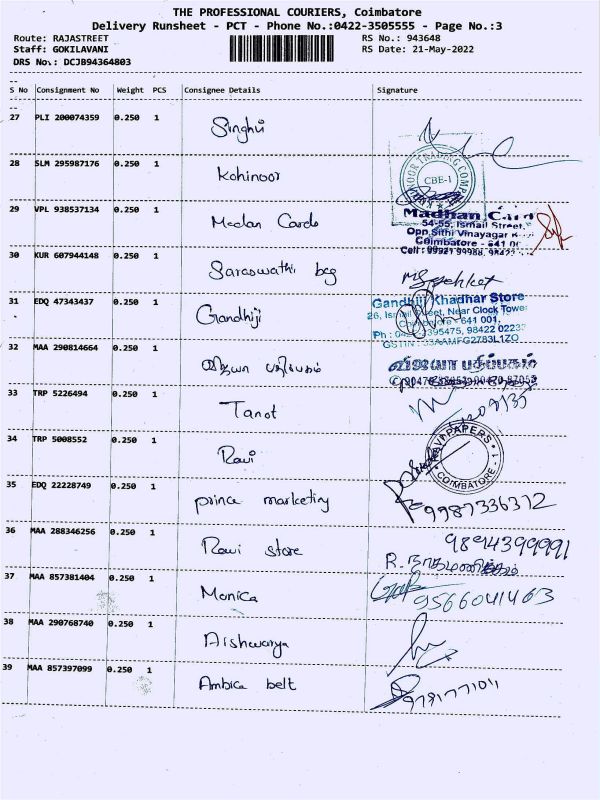 THE PROFESSIONAL COURIERS, Coimbatore
Delivery Runsheet - PCT - Phone No.:0422-3505555 - Page No.:3
Route: RAJASTREET RS No.: 943648
Staff: GOKILAVANI RS Date: 21-May-2022
DRS No.: DCJB94364803
S No Consignment No Weight PCS Consignee Details Signature
27 PLI 200074359 0.250 1 Singhvi
28 SLM 295987176 0.250 1 Kohinoor
CBE-1
29 VPL 938537134 0.250 1 Medan Cards
Madhan Card
54-55, Ismail Street,
Opp. Sithi Vinayagar
Coimbatore - 641 00
30 KUR 607944148 0.250 1 Saraswathi bag
31 EDQ 47343437 0.250 1 Gandhiji
Gandhiji Khadhar Store
26, Ismail Street, Near Clock Tower
Coimbatore - 641 001.
32 MAA 290814664 0.250 1 விஜயா பதிப்பகம்
விஜயா பதிப்பகம்
33 TRP 5226494 0.250 1 Tanot
34 TRP 5008552 0.250 1 Ravi
RAVI PAPERS
COIMBATORE - 1
35 EDQ 22228749 0.250 1 prince marketing
9987336372
36 MAA 288346256 0.250 1 Ravi store
9894399991
37 MAA 857381404 0.250 1 Monica
9566041463
38 MAA 290768740 0.250 1 Aishwarya
39 MAA 857397099 0.250 1 Ambica belt